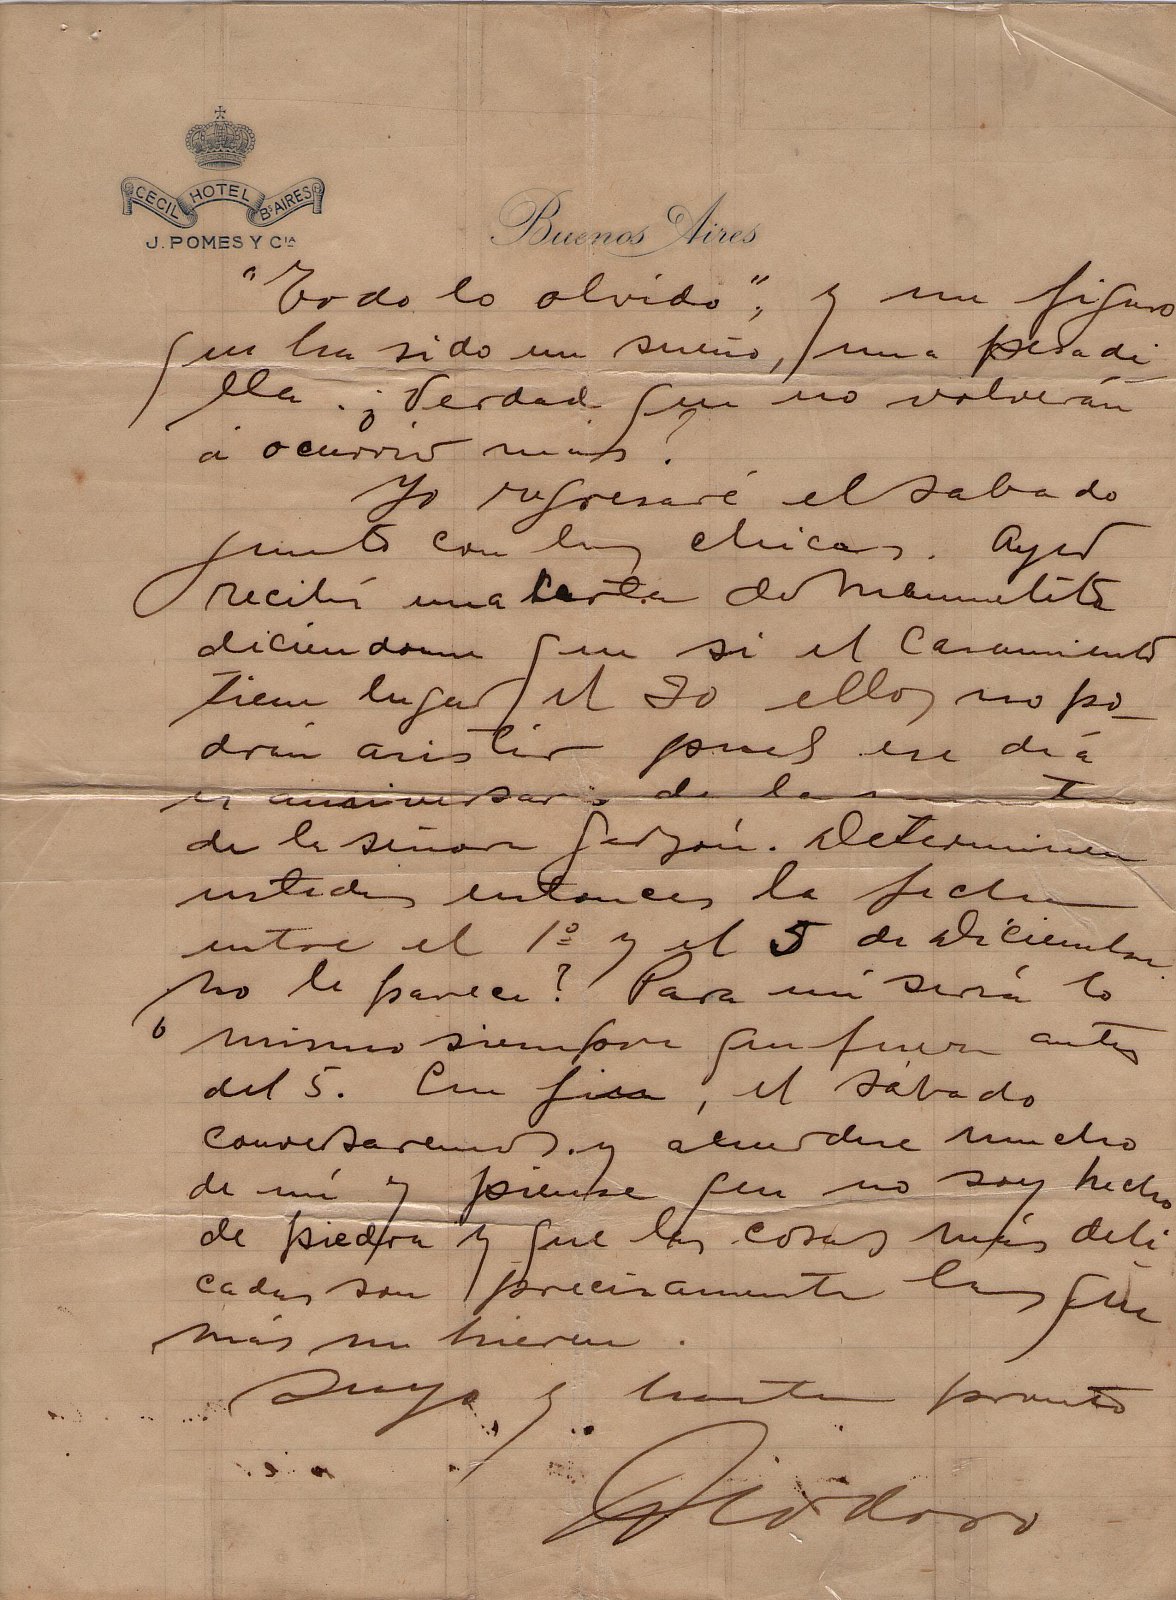 CECIL HOTEL Bs AIRES
J. POMES Y CIA
Buenos Aires
"Todo lo olvido"; y me figuro
que ha sido un sueño, una pesadi
lla. ¿Verdad que no volverán
á ocurrir más?
Yo regresaré el sabado
junto con las chicas. Ayer
recibí una carta de Manuelito
diciendome que si el casamiento
tiene lugar el 30 ellos no po_
drán asistir pues ese día
es anniversario de la muerte
de la señora Garzón. Determinen
ustedes entonces la fecha
entre el 1º y el 5 de Diciembre.
no le parece? Para mí será lo
mismo siempre que fuera antes
del 5. En fin, el sábado
conversaremos. y acuerdese mucho
de mí y piense que no soy hecho
de piedra y que las cosas más deli
cadas son precisamente las que
más me hieren.
Suyo y hasta pronto
Diódoro